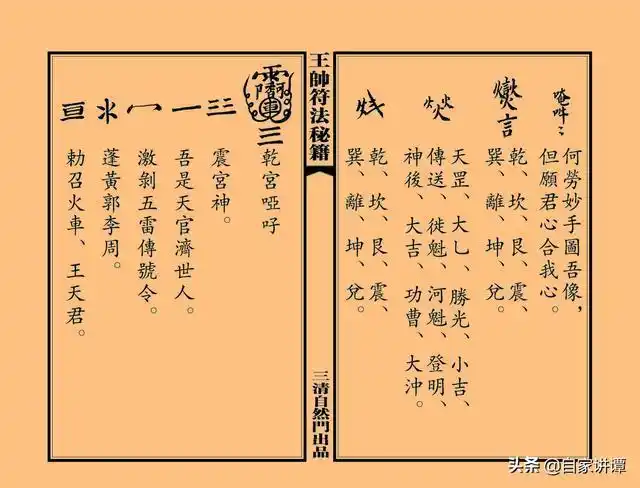 唵吽
何勞妙手圖吾像,
但願君心合我心。
言
乾、坎、艮、震、
巽、離、坤、兌。
天罡、大乚、勝光、小吉、
傳送、徙魁、河魁、登明、
神後、大吉、功曹、大沖。
乾、坎、艮、震、
巽、離、坤、兌。
王帥符法秘籍
三清自然門出品
三
乾宮啞吇
三
震宮神。
一
吾是天官濟世人。
激剝五雷傳號令。
蓬黃郭李周。
亘
勅召火車、王天君。
头条 @自家讲谭